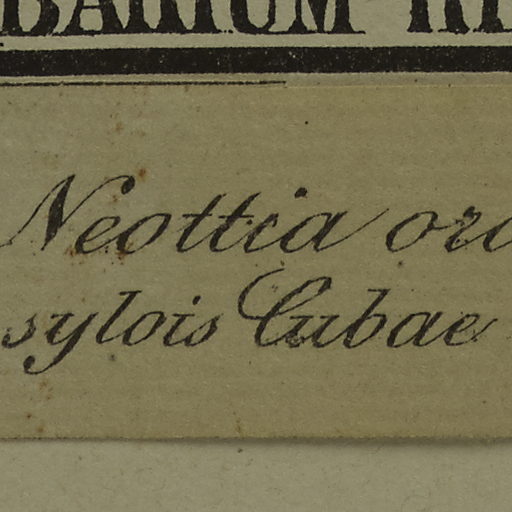 BARIUM
Neottia
sylois Cubae